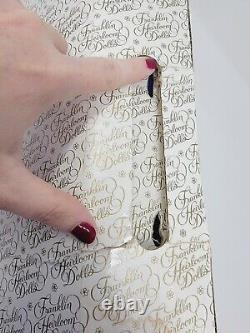 Franklin
Heirloom
Dolls
Franklin
Heirloom
Dolls
Franklin
Heirloom
Dolls
Franklin
Heirloom
Dolls
Franklin
Heirloom
Dolls
Franklin
Heirloom
Dolls
Franklin
Heirloom
Dolls
Franklin
Heirloom
Dolls